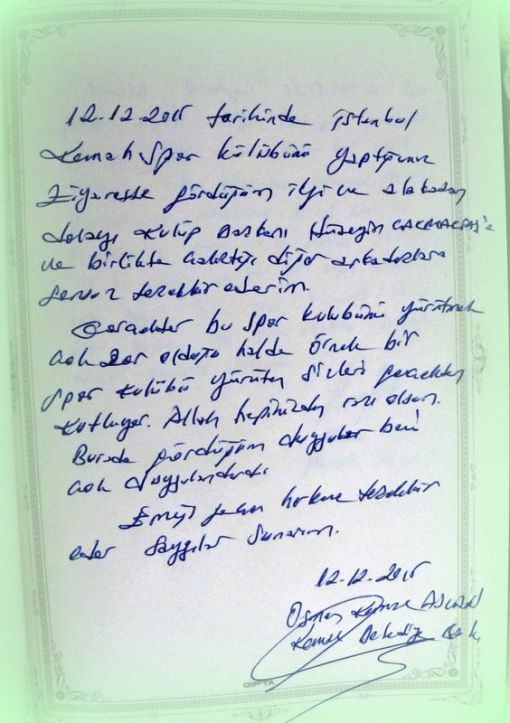 12.12.2015 tarihinde İstanbul
Kemah Spor külübünü yaptığımız
Ziyarette gördüğüm ilgi ve alakadan
dolayı Kulüp Başkanı Hüseyin ÇAKMAKTAŞ'a
ve birlikte çalıştığı diğer arkadaşlara
sonsuz teşekkür ederim.
Gerçekten bu spor kulubünü yürütmek
çok zor olduğu halde örnek bir
Spor kulübü yürüten sizleri gerçekten
Kutluyor. Allah hepinizden razı olsun.
Burada gördüğüm duygular beni
çok duygulandırdı.
Emeği geçen herkese teşekkür
eder Saygılar Sunarım.
12.12.2015
Osman Kemah
Kemah Belediye Bşk.